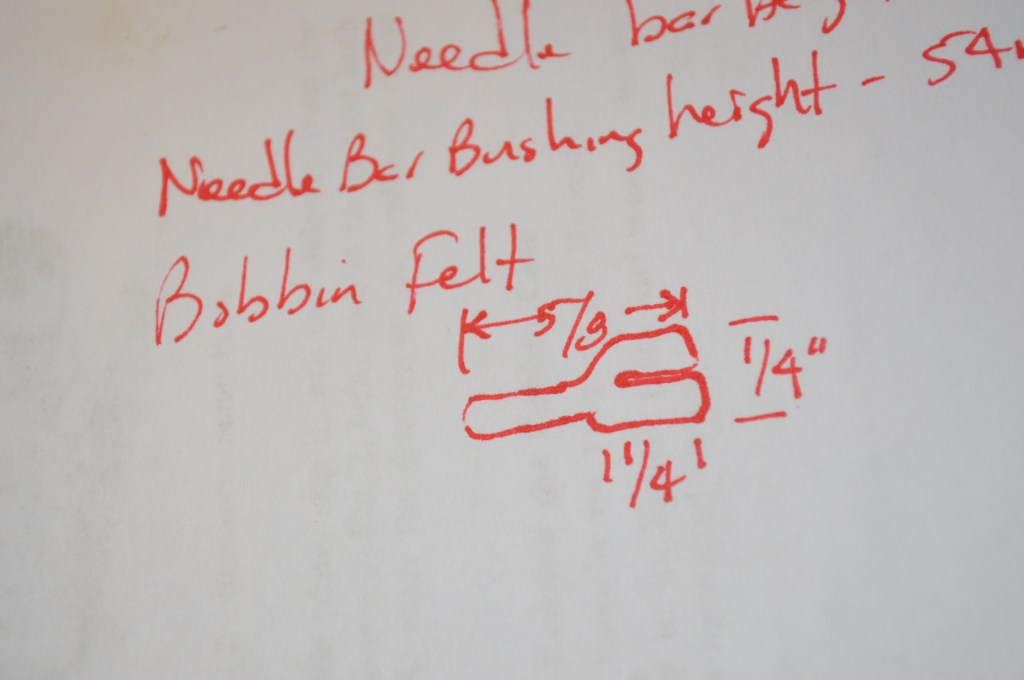 Needle bar
Needle Bar Bushing height - 54
Bobbin Felt
5/8
1/4"
1/4